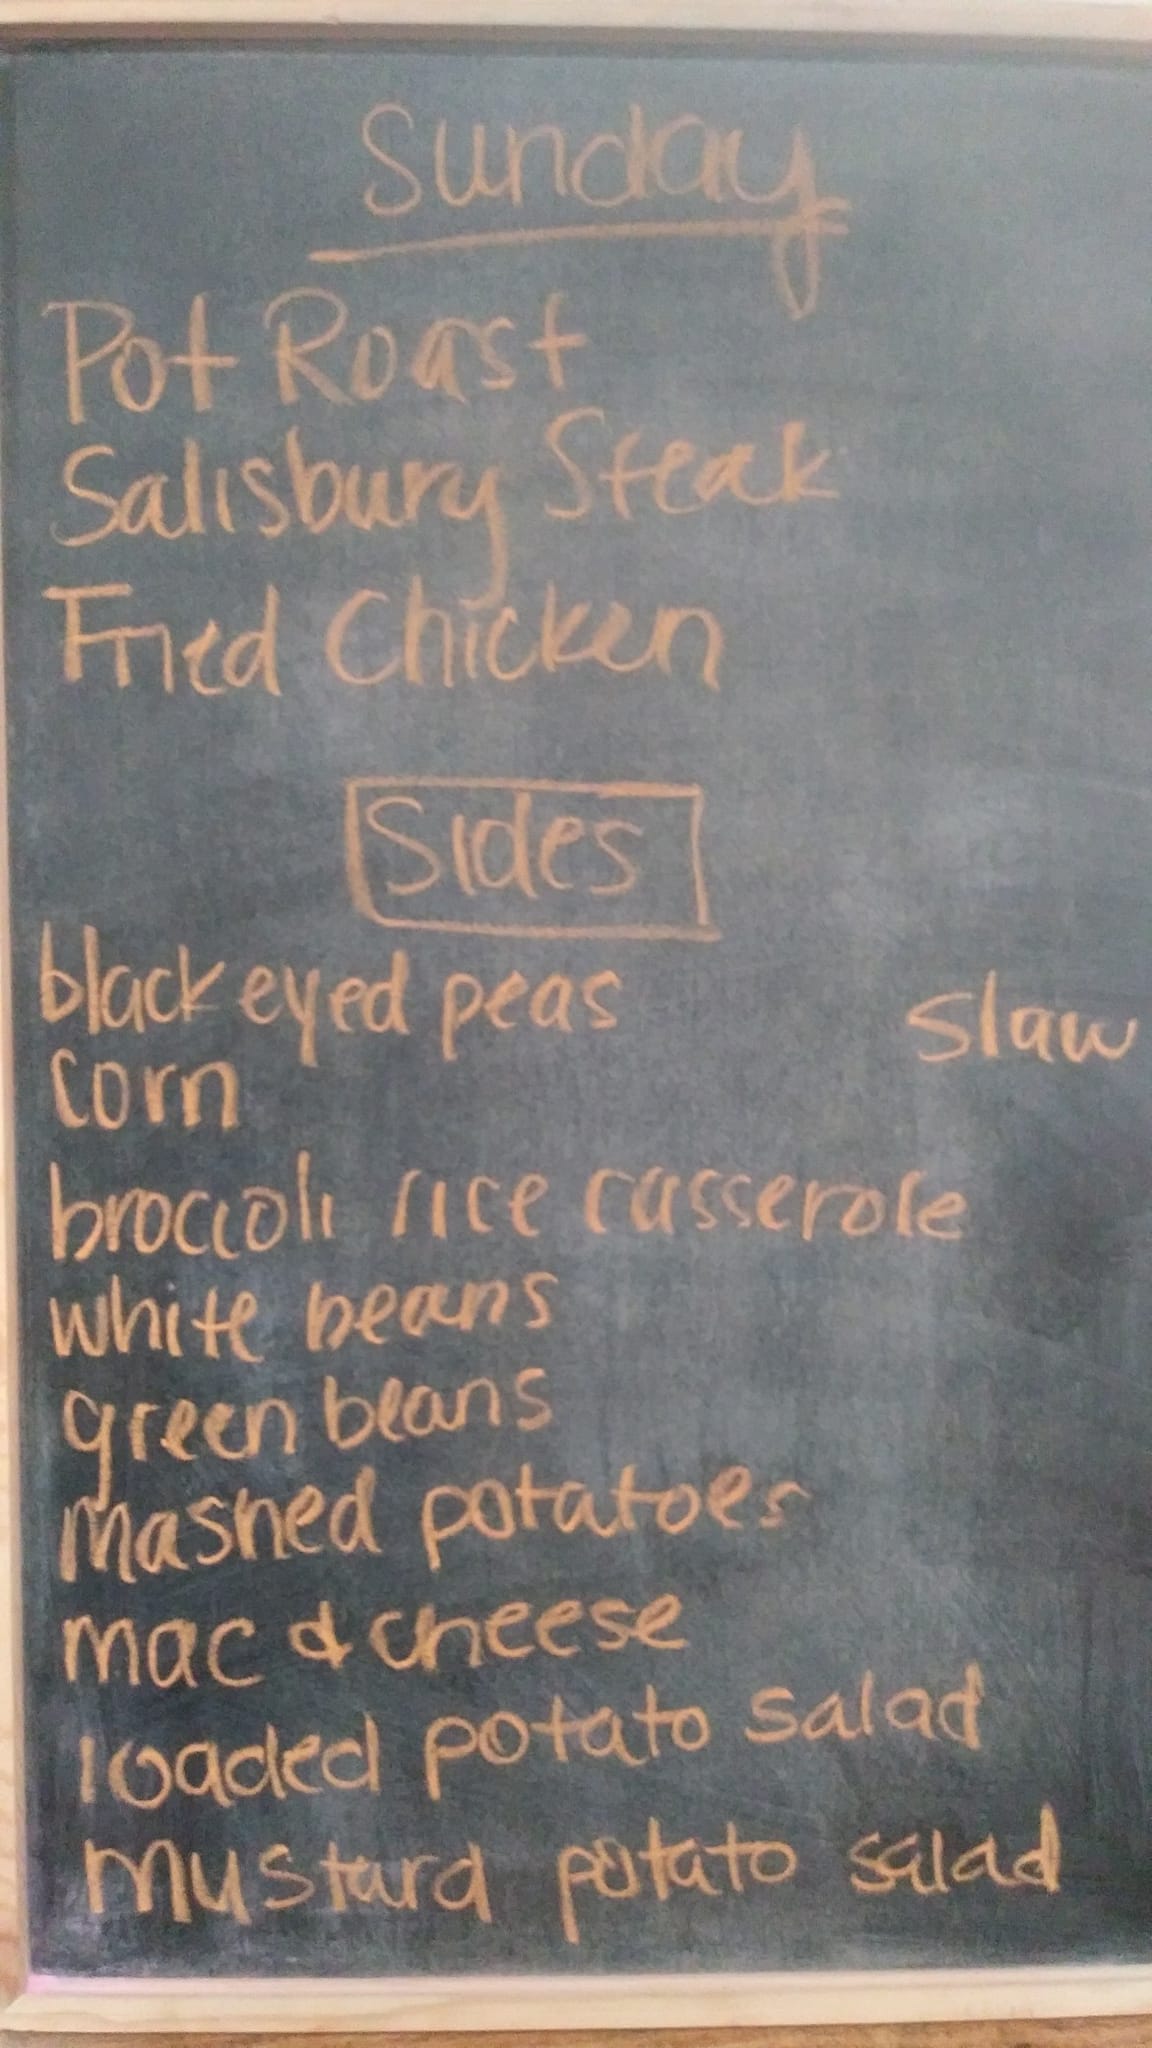 Sunday
Pot Roast
Salisbury Steak
Fried Chicken
Sides
black eyed peas
slaw
corn
broccoli rice casserole
white beans
green beans
mashed potatoes
mac & cheese
loaded potato salad
mustard potato salad